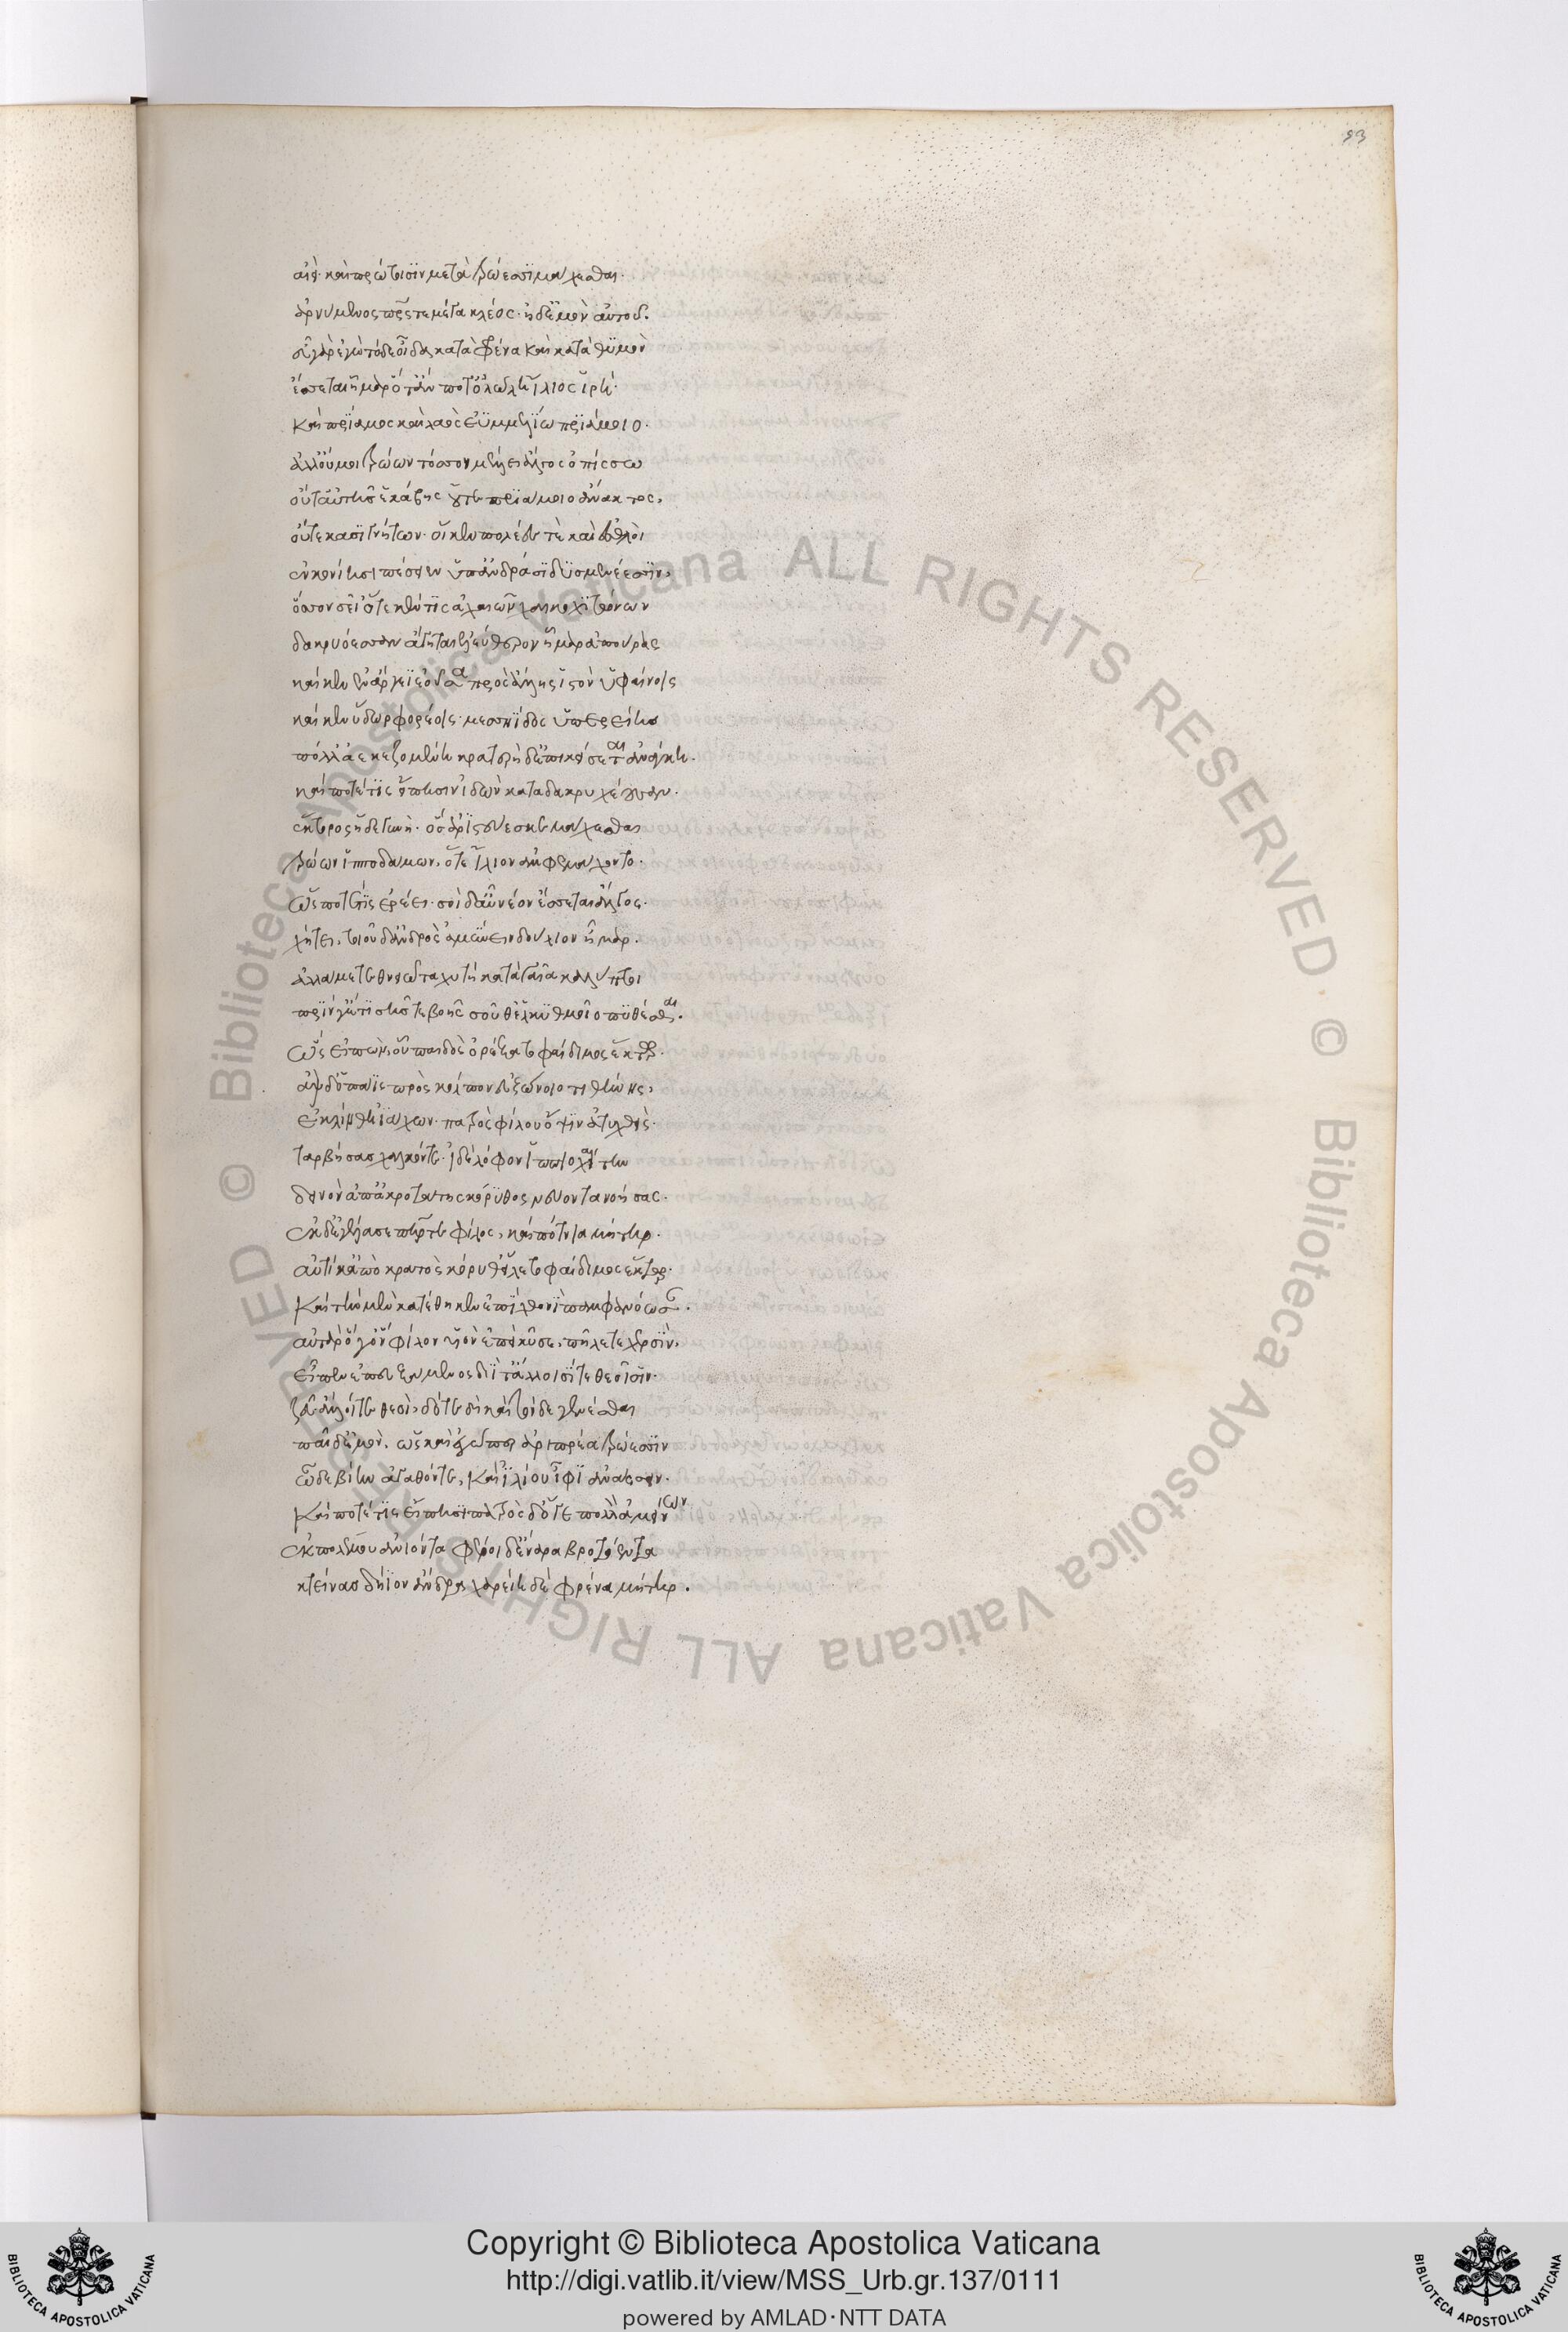 93
αἰεὶ καὶ πρώτοισιν μετὰ τρώεσσι μάχεσθαι·
ἀρνύμενος πατρός τε μέγα κλέος· ἠδ' ἐμὸν αὐτοῦ.
εὖ γὰρ ἐγὼ τόδε οἶδα κατὰ φρένα καὶ κατὰ θυμὸν
ἔσσεται ἦμαρ ὅτ' ἄν ποτ' ὀλώλη ἴλιος ἱρή·
καὶ πρίαμος καὶ λαὸς ἐϋμμελίω πριάμοιο.
ἀλλ' οὔ μοι τρώων τόσσον μέλει ἄλγος ὀπίσσω
οὔτ' αὐτῆς ἑκάβης οὔτε πριάμοιο ἄνακτος,
οὔτε κασιγνήτων· οἵ κεν πολέες τὲ καὶ ἐσθλοὶ
ἐν κονίῃσι πέσοιεν ὑπ' ἀνδράσι δυσμενέεσσιν,
ὅσσον σεῖ' ὅτε κέν τις ἀχαιῶν χαλκοχιτώνων
δακρυόεσσαν ἄγηται ἐλεύθερον ἦμαρ ἀπούρας
καί κεν ἐν ἄργει ἐοῦσα πρὸς ἄλλης ἱστὸν ὑφαίνοις
καί κεν ὕδωρ φορέοις· μεσσηΐδος ὑπερείης
πόλλ' ἀεκαζομένη κρατερὴ δ' ἐπικείσεται ἀνάγκη.
καί ποτέ τις εἴπῃσιν ἰδὼν κατὰ δάκρυ χέουσαν.
ἕκτορος ἥδε γυνὴ· ὃς ἀριστεύεσκε μάχεσθαι
τρώων ἱπποδάμων, ὅτε ἴλιον ἀμφεμάχοντο.
ὥς ποτέ τις ἐρέει· σοὶ δ' αὖ νέον ἔσσεται ἄλγος·
χήτει, τοιοῦδ' ἀνδρὸς ἀμύνειν δούλιον ἦμαρ.
ἀλλά με τεθνειῶτα χυτὴ κατὰ γαῖα καλύπτοι
πρίν γ' ἔτι σῆς τε βοῆς σοῦ θ' ἑλκηθμοῖο πυθέσθαι.
ὣς εἰπὼν, οὗ παιδὸς ὀρέξατο φαίδιμος ἕκτωρ.
ἂψ δ' ὁ πάϊς πρὸς κόλπον ἐϋζώνοιο τιθήνης,
ἐκλίνθη ἰάχων· πατρὸς φίλου ὄψιν ἀτυχθεὶς·
ταρβήσας χαλκόν τε· ἰδὲ λόφον ἱππιοχαίτην
δεινὸν ἀπ' ἀκροτάτης κόρυθος νεύοντα νοήσας.
ἐκ δ' ἐγέλασε πατήρ τε φίλος, καὶ πότνια μήτηρ.
αὐτίκ' ἀπὸ κρατὸς κόρυθ' εἵλετο φαίδιμος ἕκτωρ·
καὶ τὴν μὲν κατέθηκεν ἐπὶ χθονὶ παμφανόωσαν.
αὐτὰρ ὅγ' ὃν φίλον υἱὸν ἐπεὶ κύσε, πῆλέ τε χερσὶν,
εἶπεν ἐπευξάμενος διΐ τ' ἄλλοισί τε θεοῖσιν·
ζεῦ ἄλλοι τε θεοὶ, δότε δὴ καὶ τόνδε γενέσθαι
παῖδ' ἐμὸν, ὡς καὶ ἐγώ περ ἀριπρεπέα τρώεσσιν
ὧδε βίην ἀγαθόν τε, καὶ ἰλίου ἶφι ἀνάσσειν.
καί ποτέ τις εἴπῃσι πατρὸς δ' ὅγε πολλὸν ἀμείνων
ἐκ πολέμου ἀνιόντα φέροι δ' ἔναρα βροτόεντα
κτείνας δήϊον ἄνδρα χαρείη δὲ φρένα μήτηρ.
Copyright © Biblioteca Apostolica Vaticana
http://digi.vatlib.it/view/MSS_Urb.gr.137/0111
powered by AMLAD·NTT DATA
BIBLIOTECA APOSTOLICA VATICANA
BIBLIOTECA APOSTOLICA VATICANA
© Biblioteca Apostolica Vaticana ALL RIGHTS RESERVED · © Biblioteca Apostolica Vaticana ALL RIGHTS RESERVED